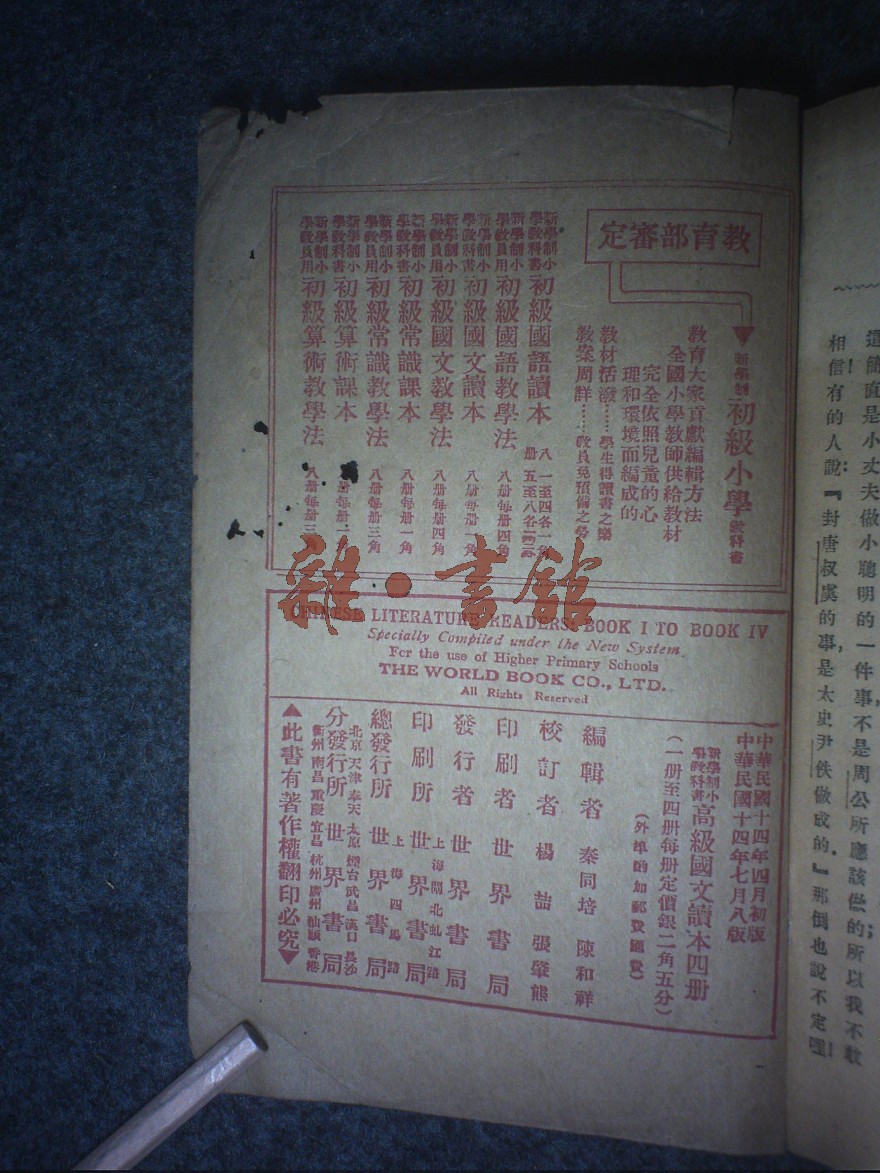 教育部審定
新學制初級小學教科書
教育大家貢獻編輯方法
全國小學教師供給教材
完全依照兒童的心
理和環境而編成的
教材活潑……學生得讀書之樂
教案周詳……教員免預備之勞
新學制小學教科書初級國語讀本
新學制小學教員用初級國語教學法 八册每册四角
新學制小學教科書初級國文讀本 八册每册一角
新學制小學教員用初級國文教學法 八册每册四角
新學制小學教科書初級常識課本 八册每册一角
新學制小學教員用初級常識教學法 八册每册三角
新學制小學教科書初級算術課本 八册每册
新學制小學教員用初級算術教學法 八册每册三
雜·書館
CHINESE LITERATURE READERS: BOOK I TO BOOK IV
Specially Compiled under the New System.
For the use of Higher Primary Schools
THE WORLD BOOK CO., LTD.
All Rights Reserved
中華民國十四年四月初版
中華民國十四年七月八版
新學制小學教科書高級國文讀本四册
(一册至四册每册定價銀二角五分)
(外埠酌加郵費匯費)
編輯者 秦同培 陳和祥
校訂者 楊喆 張肇熊
印刷者 世界書局
發行者 世界書局
印刷所 上海閘北虬江路 世界書局
總發行所 上海四馬路 世界書局
分發行所 北京 天津 奉天 太原 煙台 武昌 漢口 長沙 衢州 南昌 重慶 宜昌 杭州 廣州 汕頭 香港 世界書局
▲此書有著作權翻印必究▼
這簡直是小丈夫做小聰明的一件事,不是周公所應該做的;所以我不敢
相信!有的人說:『封唐叔虞的事,是太史尹佚做成的。』那倒也說不定哩!